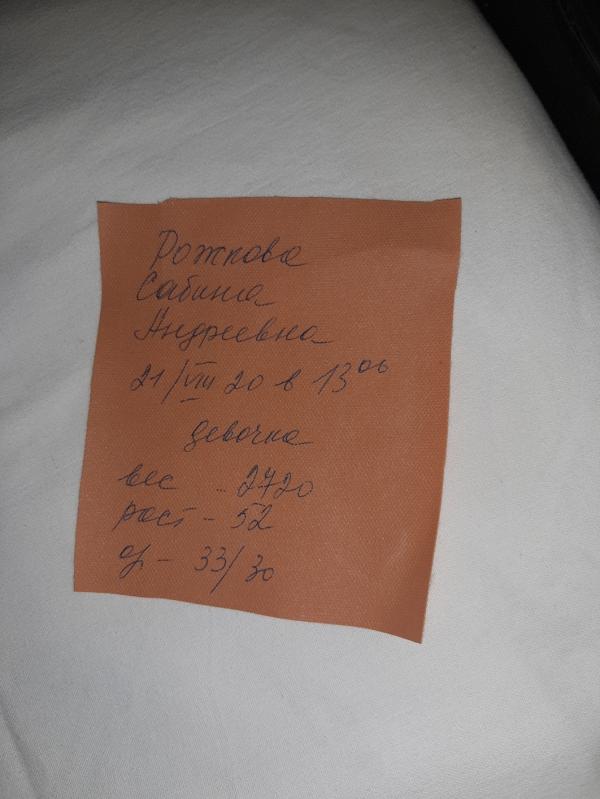 Рожкова
Сабина
Андреевна
21/VIII 20 в 13⁰⁶
девочка
вес - 2720
рост - 52
33/30